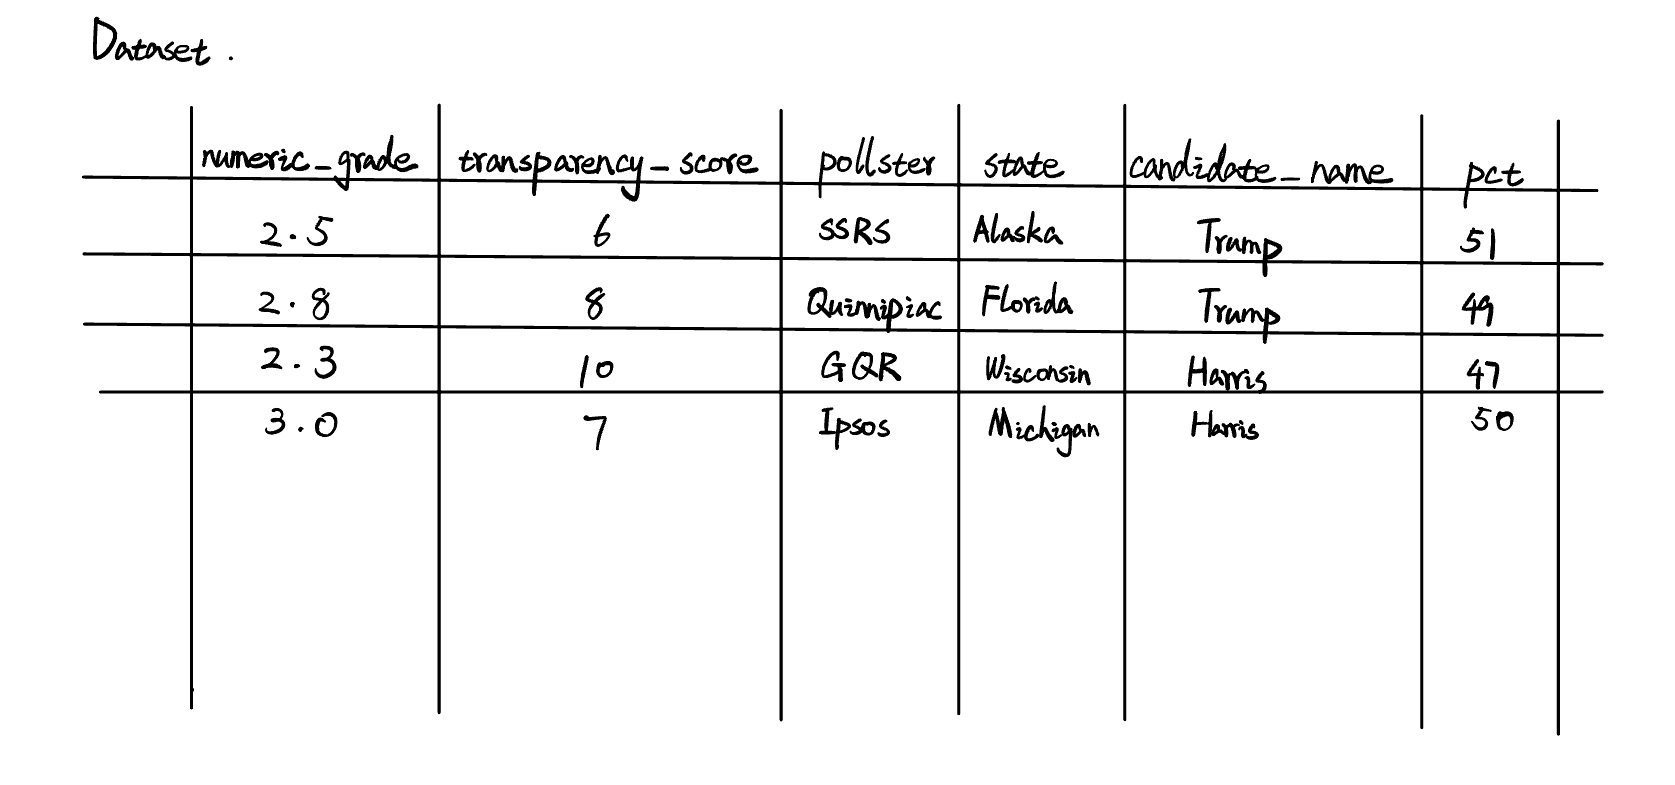 Dataset.
numeric_grade transparency_score pollster state candidate_name pct
2.5 6 SSRS Alaska Trump 51
2.8 8 Quinnipiac Florida Trump 49
2.3 10 GQR Wisconsin Harris 47
3.0 7 Ipsos Michigan Harris 50